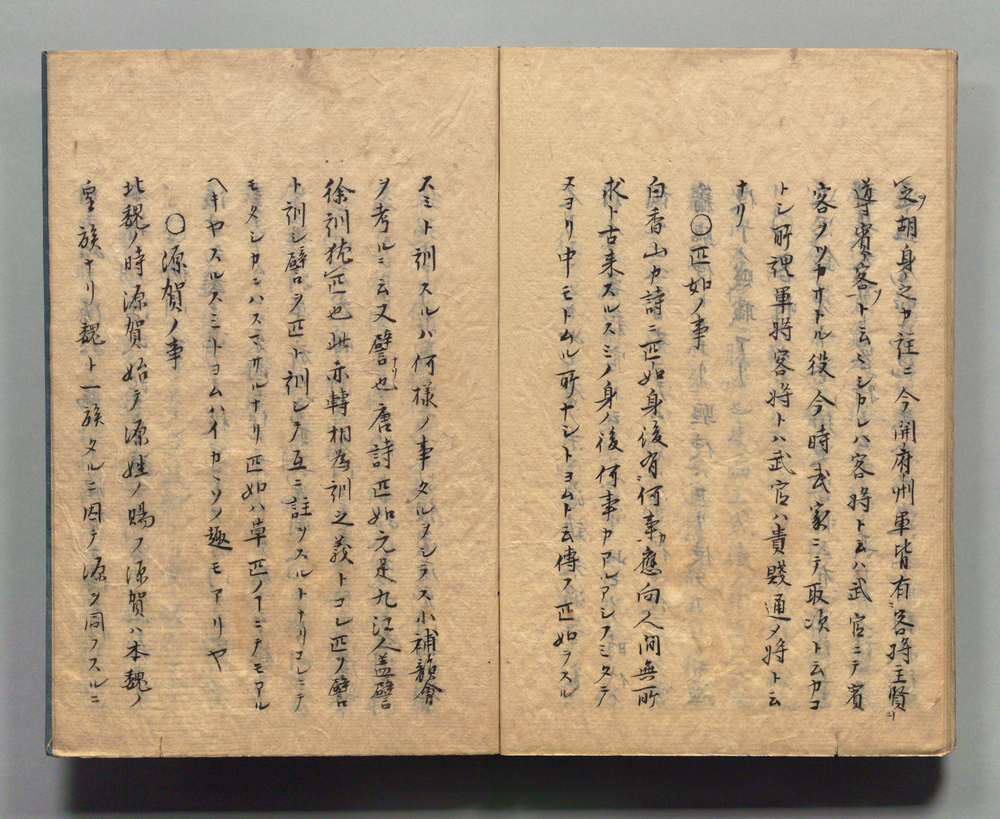 之ヲ胡身之カ註ニ今開府州軍皆有客將主賢
導賓客ト云ヘシカレハ客將ト云ハ武官ニテ賓
客ヲツカサトル役今時武家ニテ取次ト云カコ
トシ所謂軍將客將トハ武官ハ貴賤通ノ將ト云
ナリ
〇匹如ノ事
白香山カ詩ニ匹如身後有何事應向人間無所
求ト古来スルスミノ身ノ後何事カアルアシフミタテ
スヨリ中モトムル所ナシトヨムト云傳フ匹如ヲスル
スミト訓スルハ何様ノ事タルヲシラス小補韻會
ヲ考ルニ云又譬也唐詩匹如元是九江人蓋譬
徐訓猶匹也此亦轉相為訓之義トコレ匹ヲ譬
ト訓シ譬ヲ匹ト訓シテ互ニ註ヲスルトナリコレニテ
モタシカニハスマサルナリ匹如ハ草匹ノ了ニテモアル
ヘキヤスルスミトヨムハイカミソノ趣モアリヤ
〇源賀ノ事
北魏ノ時源賀始テ源姓ノ賜フ源賀ハ本魏ノ
皇族ナリ魏ト一族タルニ因テ源ヲ同フスルニ